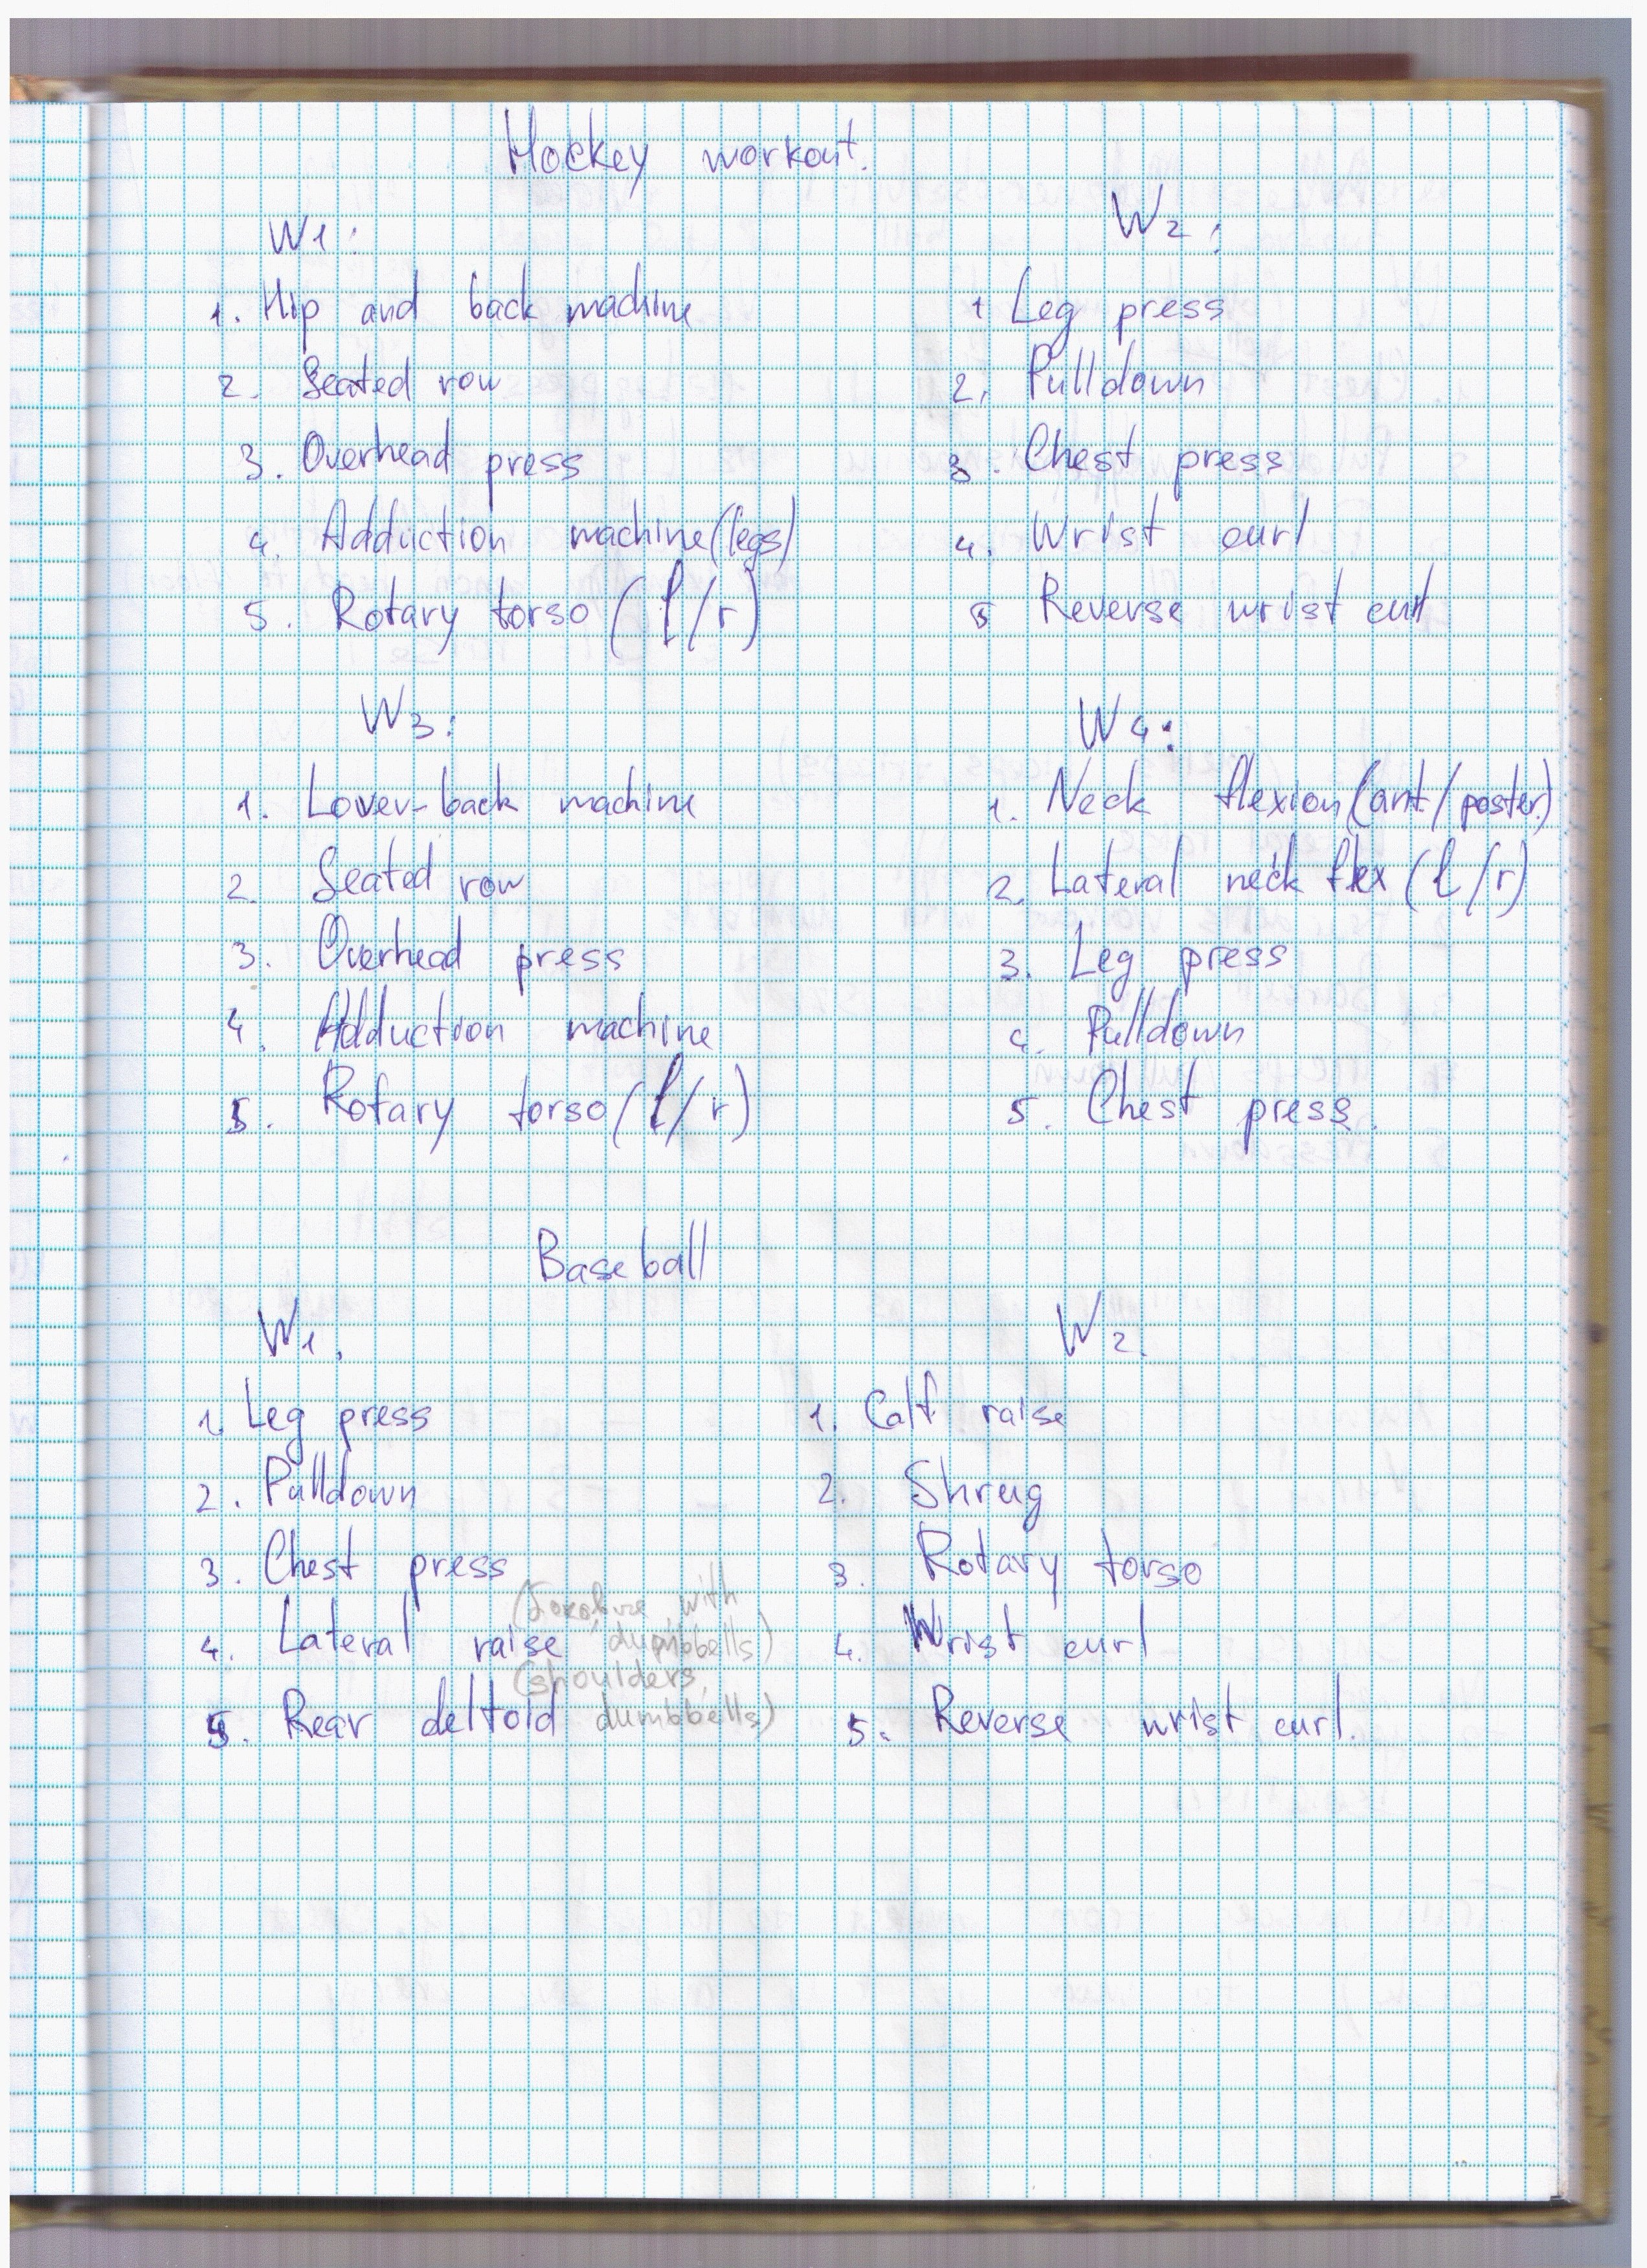 Hockey workout.
W1:
1. Hip and back machine
2. Seated row
3. Overhead press
4. Adduction machine (legs)
5. Rotary torso (l/r)
W2:
1 Leg press
2. Pulldown
3. Chest press
4. Wrist curl
5 Reverse wrist curl
W3:
1. Lover-back machine
2. Seated row
3. Overhead press
4. Adduction machine
5. Rotary torso (l/r)
W4:
1. Neck flexion (ant/poster.)
2. Lateral neck flex (l/r)
3. Leg press
4. Pulldown
5. Chest press.
Baseball
W1.
1. Leg press
2. Pulldown
3. Chest press
(with
4. Lateral raise dumbbells)
(shoulders,
5. Rear deltoid dumbbells)
W2.
1. Calf raise
2. Shrug
3. Rotary torso
4. Wrist curl
5. Reverse wrist curl.